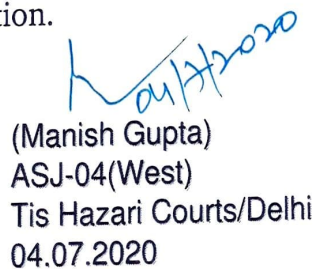 tion.
04/7/2020
(Manish Gupta)
ASJ-04(West)
Tis Hazari Courts/Delhi
04.07.2020